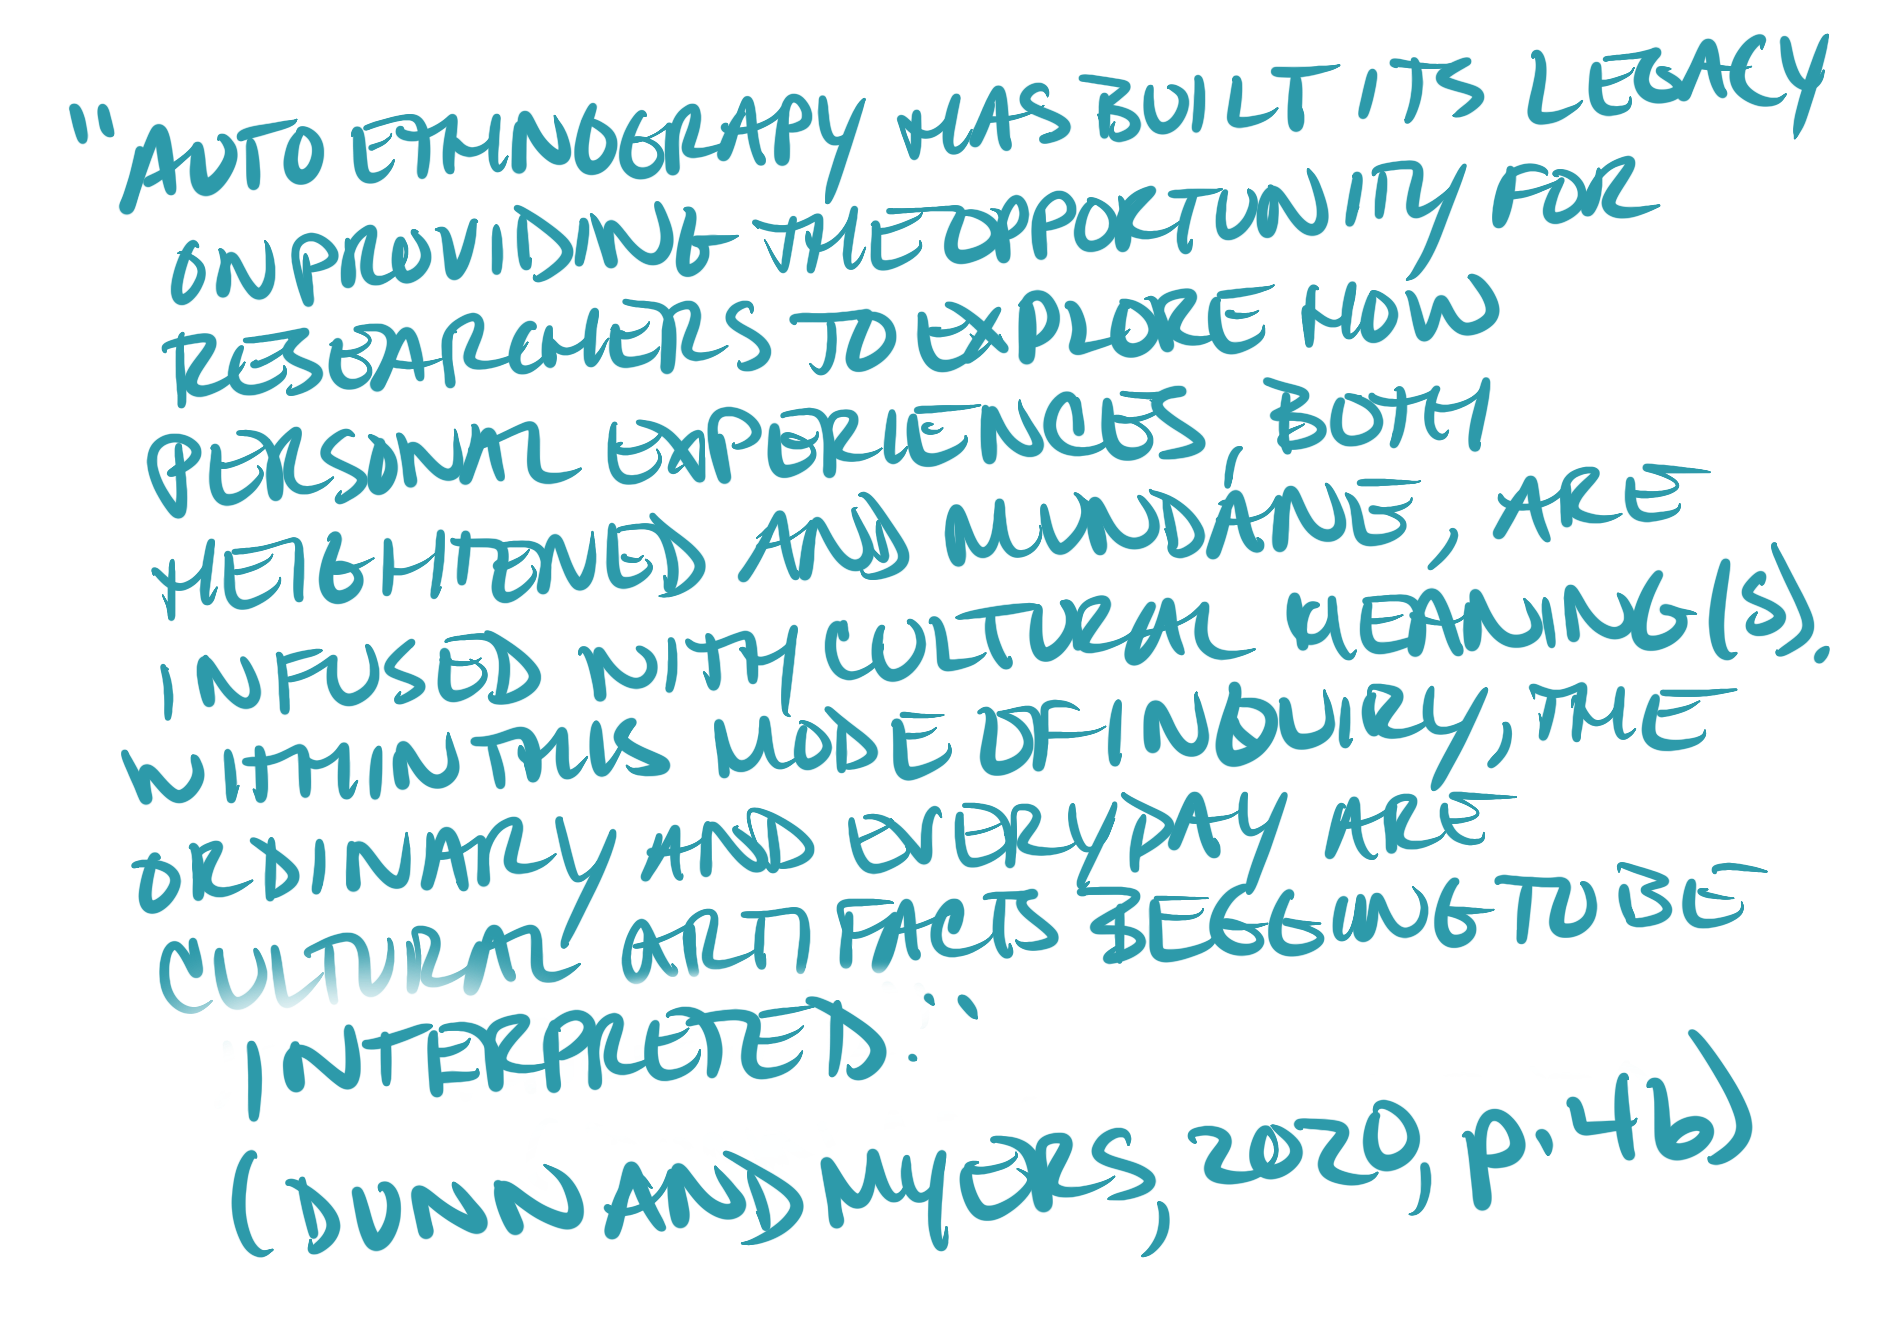 "AUTOETHNOGRAPY HAS BUILT ITS LEGACY
ON PROVIDING THE OPPORTUNITY FOR
RESEARCHERS TO EXPLORE HOW
PERSONAL EXPERIENCES, BOTH
HEIGHTENED AND MUNDANE, ARE
INFUSED WITH CULTURAL MEANING(S).
WITHIN THIS MODE OF INQUIRY, THE
ORDINARY AND EVERYDAY ARE
CULTURAL ARTIFACTS BEGGING TO BE
INTERPRETED."
(DUNN AND MYERS, 2020, p. 46)